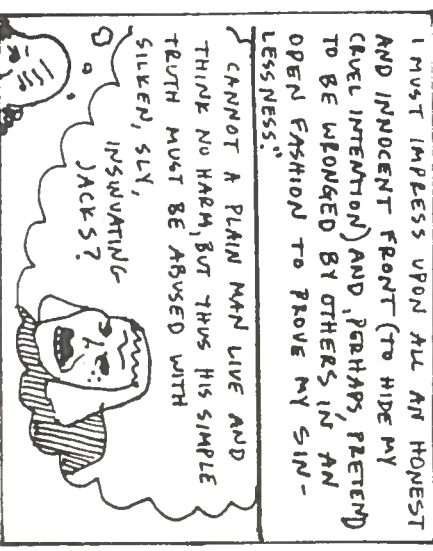 I MUST IMPRESS UPON ALL AN HONEST
AND INNOCENT FRONT (TO HIDE MY
CRUEL INTENTION) AND, PERHAPS, PRETEND
TO BE WRONGED BY OTHERS IN AN
OPEN FASHION TO PROVE MY SIN-
LESSNESS."
CANNOT A PLAIN MAN LIVE AND
THINK NO HARM, BUT THUS HIS SIMPLE
TRUTH MUST BE ABUSED WITH
SILKEN, SLY,
INSINUATING
JACKS?